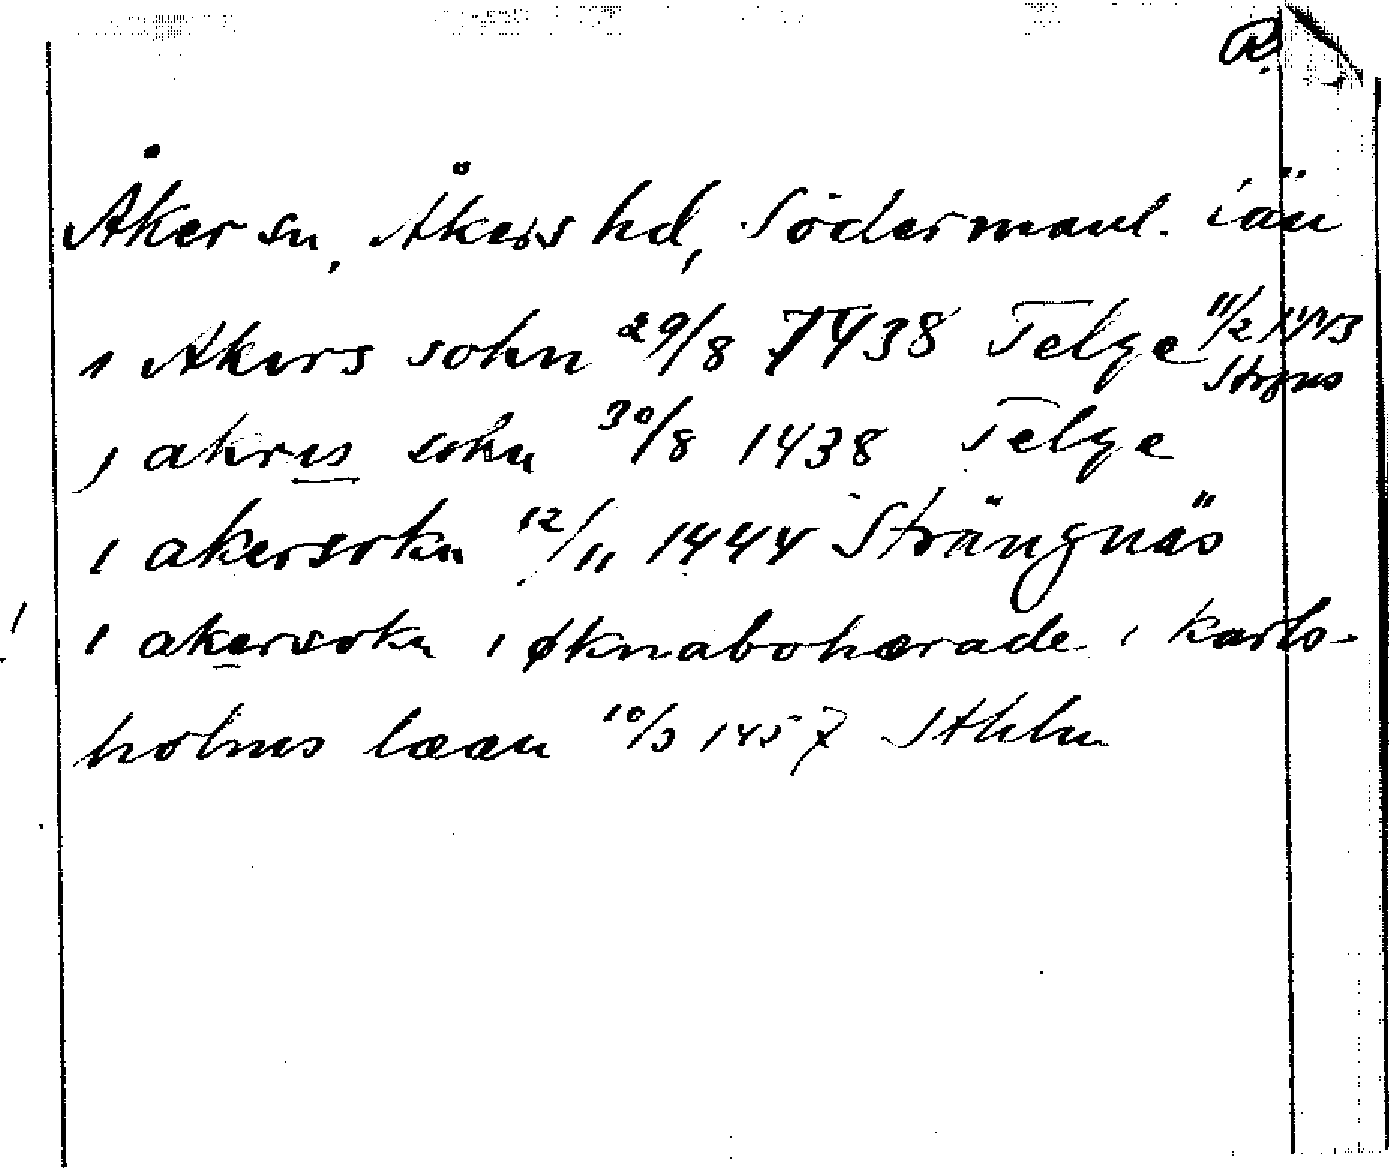 R.
Åker sn, Åkers hd, Södermanl. län
i Akers sokn 29/8 1438 Telge 11/2 1443 Strgns
i akris sokn 30/8 1438 Telge
i akersokn 12/11 1444 Strängnäs
i akersokn i øknabohærade i karls-
holms lææn 10/3 1457 Sthlm